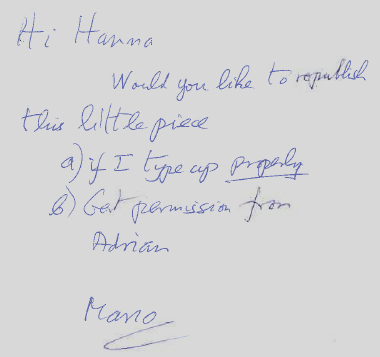 Hi Hanna
Would you like to republish
this little piece
a) if I type up properly
b) Get permission from
Adrian
Mario